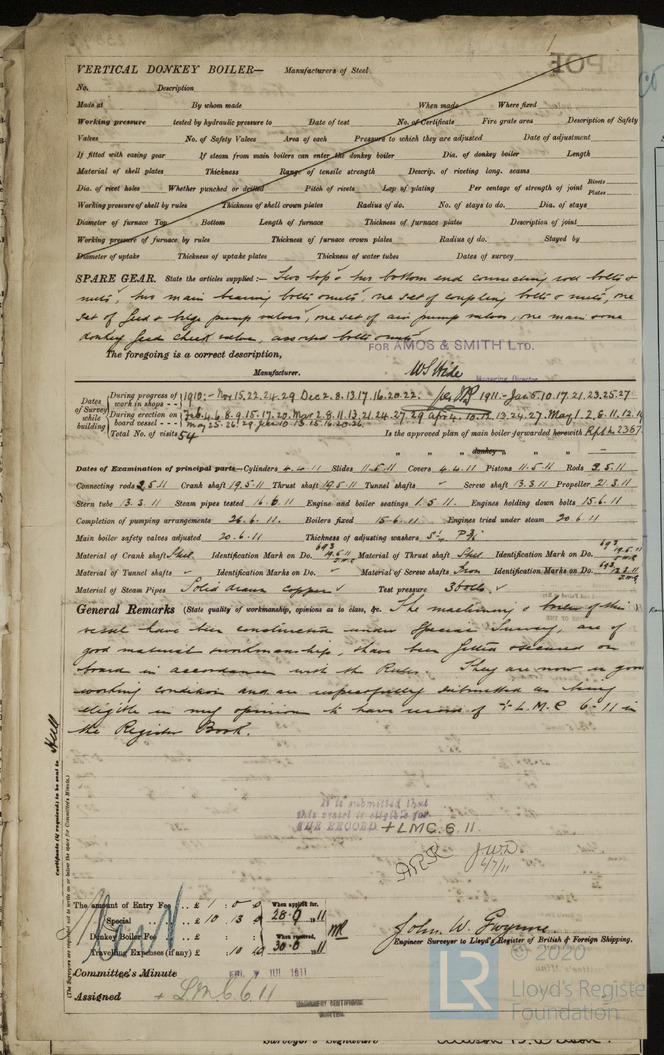 VERTICAL DONKEY BOILER— Manufacturers of Steel
No. Description
Made at By whom made When made Where fixed
Working pressure tested by hydraulic pressure to Date of test No. of Certificate Fire grate area Description of Safety
Valves No. of Safety Valves Area of each Pressure to which they are adjusted Date of adjustment
If fitted with easing gear If steam from main boilers can enter the donkey boiler Dia. of donkey boiler Length
Material of shell plates Thickness Range of tensile strength Descrip. of riveting long. seams
Dia. of rivet holes Whether punched or drilled Pitch of rivets Lap of plating Per centage of strength of joint Rivets Plates
Working pressure of shell by rules Thickness of shell crown plates Radius of do. No. of stays to do. Dia. of stays
Diameter of furnace Top Bottom Length of furnace Thickness of furnace plates Description of joint
Working pressure of furnace by rules Thickness of furnace crown plates Radius of do. Stayed by
Diameter of uptake Thickness of uptake plates Thickness of water tubes Dates of survey
SPARE GEAR. State the articles supplied:— Two top & two bottom end connecting rod bolts &
nuts, two main bearing bolts & nuts, one set of coupling bolts & nuts, one
set of feed & bilge pump valves, one set of air pump valves, one main & one
donkey feed check valve, assorted bolts & nuts
The foregoing is a correct description,
FOR AMOS & SMITH LTD.
Manufacturer. Managing Director
Dates of Survey while building
During progress of work in shops - - 1910:- Nov 15. 22. 24. 29 Dec 2. 8. 13. 17. 16. 20. 22. 1911 - Jan 5. 10. 17. 21. 23. 25. 27
During erection on board vessel - - - Feb 4. 6. 8. 9. 15. 17. 20. Mar 2. 8. 11. 13. 21. 24. 27. 29 Apr 4. 10. 13. 24. 27. May 1. 2. 6. 11. 12.
Total No. of visits 54 Is the approved plan of main boiler forwarded herewith
" " " donkey " " "
Dates of Examination of principal parts—Cylinders 4.4.11 Slides 11.5.11 Covers 4.4.11 Pistons 11.5.11 Rods 2.5.11
Connecting rods 2.5.11 Crank shaft 19.5.11 Thrust shaft 19.5.11 Tunnel shafts Screw shaft 13.3.11 Propeller 21.3.11
Stern tube 13.3.11 Steam pipes tested 16.6.11 Engine and boiler seatings 1.5.11 Engines holding down bolts 15.6.11
Completion of pumping arrangements 26.6.11. Boilers fixed 15.6.11 Engines tried under steam 20.6.11
Main boiler safety valves adjusted 20.6.11 Thickness of adjusting washers
Material of Crank shaft Steel Identification Mark on Do. 693 19.5.11 Material of Thrust shaft Steel Identification Mark on Do. 693 19.5.11
Material of Tunnel shafts Identification Marks on Do. Material of Screw shafts Iron Identification Marks on Do. 693
Material of Steam Pipes Solid drawn copper Test pressure
General Remarks (State quality of workmanship, opinions as to class, &c. The machinery & boiler of this
vessel have been constructed under Special Survey, are of
good material & workmanship, & have been fitted & secured on
board in accordance with the Rules. They are now in good
working condition and are respectfully submitted as being
eligible in my opinion to have record of + L.M.C 6-11 in
the Register Book.
Certificate (if required) to be sent to Hull
(The Surveyors are requested not to write on or below the space for Committee's Minute.)
It is submitted that
this vessel is eligible for
THE RECORD +LMC. 6. 11.
6/7/11
The amount of Entry Fee .. £ 1 : 0 : 0 When applied for,
Special .. £ 10 : 13 : 28.6.1911
Donkey Boiler Fee .. £ : : When received,
Travelling Expenses (if any) £ : 10 : 30.6.1911
John W. Gwynne
Engineer Surveyor to Lloyd's Register of British & Foreign Shipping.
Committee's Minute FRI. 7 JUL 1911
Assigned + LMC. 6. 11
MACHINERY CERTIFICATE
WRITTEN
© 2020
LR Lloyd's Register
Foundation
Surveyor's Signature